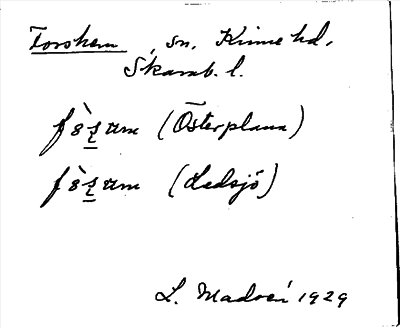 Forshem, sn. Kinne hd.
Skarab. l.
fə̀s̲um (Österplana)
fə̀s̲um (Ledsjö)
L. Madsén 1929